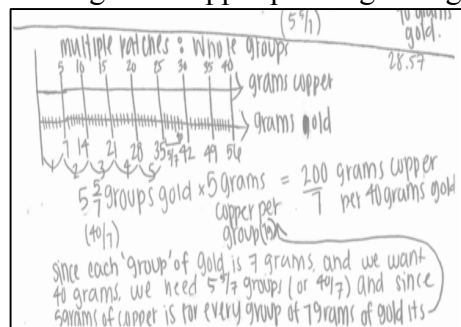 (5 5/7)
gold.
28.57
multiple batches : whole groups
5 10 15 20 25 30 35 40
grams copper
grams gold
7 14 21 28 35 5/7 42 49 56
1 2 3 4 5
5 5/7 groups gold x 5 grams copper per group(s) = 200/7 grams copper per 40 grams gold
(40/7)
since each 'group' of gold is 7 grams, and we want
40 grams, we need 5 5/7 groups (or 40/7) and since
5grams of copper is for every group of 7grams of gold its